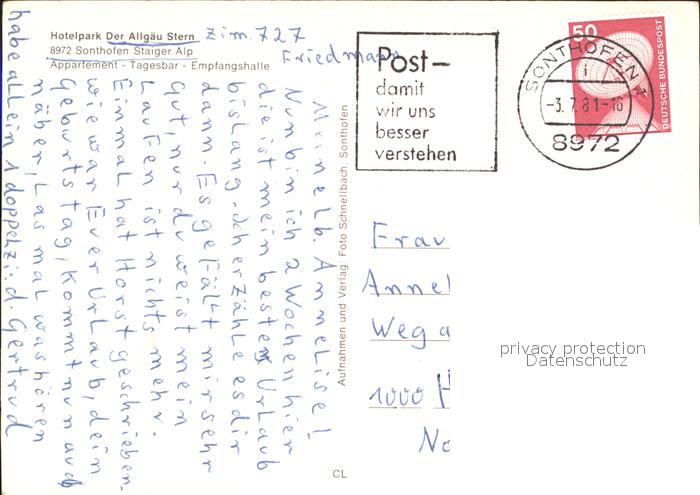 Hotelpark Der Allgäu Stern
8972 Sonthofen Staiger Alp
Appartement - Tagesbar - Empfangshalle
Zim. 727
Friedmann
Meine lb. Annelise!
Nun bin ich 2 Wochen hier
die ist mein bester Urlaub
bislang, ich erzähle es dir
dann. Es gefällt mir sehr
gut, nur du weist mein
Laufen ist nichts mehr.
Einmal hat Horst geschrieben.
wie war Euer Urlaub, dein
Geburtstag, kommt nun auch
näher, Las mal was hören
habe allein 1 doppelzi: d. Gertrud
Aufnahmen und Verlag: Foto Schnellbach, Sonthofen
CL
Post-
damit
wir uns
besser
verstehen
SONTHOFEN 1
i
-3.7.81-16
8972
50
DEUTSCHE BUNDESPOST
Frau
Annel
Weg a
1000 H
No
privacy protection
Datenschutz